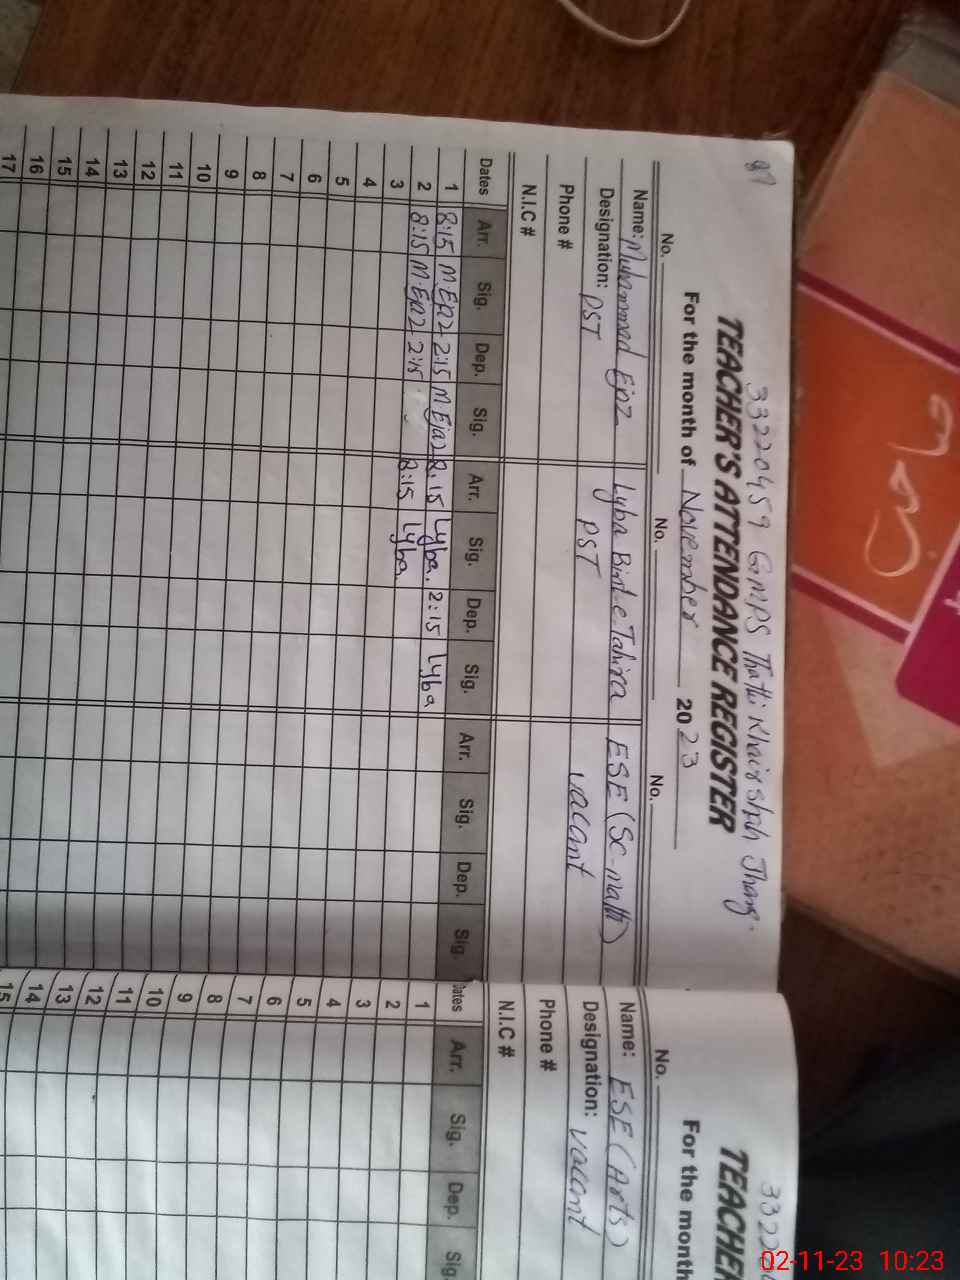 33220459 GMPS Thatti Khair shah Jhang.
TEACHER'S ATTENDANCE REGISTER
For the month of November 2023
No. No. No.
Name: Muhammad Ejaz Lyba Bint-e-Tahira ESE (Sc-math)
Designation: PST PST vacant
Phone #
N.I.C #
Dates Arr. Sig. Dep. Sig. Arr. Sig. Dep. Sig. Arr. Sig. Dep. Sig.
1 8:15 M.Ejaz 2:15 M.Ejaz 8:15 Lyba. 2:15 Lyba
2 8:15 M.Ejaz 2:15 8:15 Lyba.
3
4
5
6
7
8
9
10
11
12
13
14
15
16
17
3322
TEACHER
For the month
No.
Name: ESE (Arts)
Designation: vacant
Phone #
N.I.C #
Dates Arr. Sig. Dep. Sig.
1
2
3
4
5
6
7
8
9
10
11
12
13
14
15
02-11-23 10:23